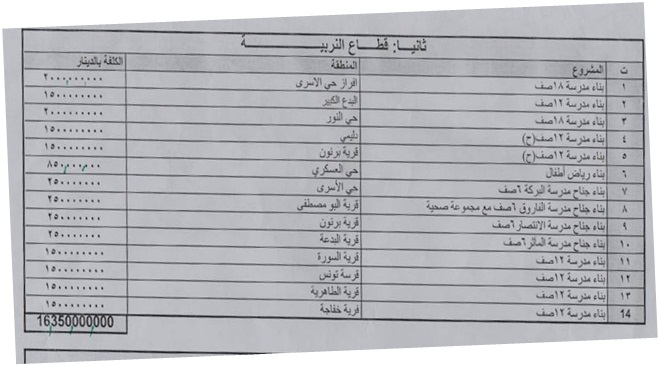 ثانيا: قطاع التربية
ت المشروع المنطقة الكلفة بالدينار
١ بناء مدرسة ١٨صف افراز حي الاسرى ٢٠٠٠,٠٠٠,٠٠٠
٢ بناء مدرسة ١٢صف البدع الكبير ١٥٠٠٠٠٠٠٠٠
٣ بناء مدرسة ١٨صف حي النور ٢٠٠٠٠٠٠٠٠٠
٤ بناء مدرسة ١٢صف(ح) دليمي ١٥٠٠٠٠٠٠٠٠
٥ بناء مدرسة ١٢صف(ح) قرية برنون ١٥٠٠٠٠٠٠٠٠
٦ بناء رياض أطفال حي العسكري ٨٥٠,٠٠٠,٠٠٠
٧ بناء جناح مدرسة البركة ٦صف حي الأسرى ٢٥٠٠٠٠٠٠٠
٨ بناء جناح مدرسة الفاروق ٦صف مع مجموعة صحية قرية البو مصطفى ٢٥٠٠٠٠٠٠٠
٩ بناء جناح مدرسة الانتصار ٦صف قرية برنون ٢٥٠٠٠٠٠٠٠
١٠ بناء جناح مدرسة المآثر ٦صف قرية البدعة ٢٥٠٠٠٠٠٠٠
١١ بناء مدرسة ١٢صف قرية السورة ١٥٠٠٠٠٠٠٠٠
١٢ بناء مدرسة ١٢صف قرسة تونس ١٥٠٠٠٠٠٠٠٠
١٣ بناء مدرسة ١٢صف قرية الطاهرية ١٥٠٠٠٠٠٠٠٠
14 بناء مدرسة ١٢صف قرية خفاجة ١٥٠٠٠٠٠٠٠٠
16350000000